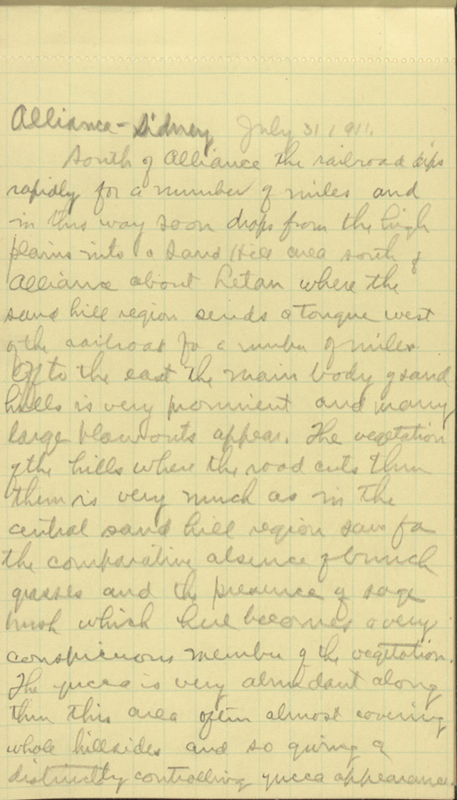 Alliance - Sidney July 31, 1911.
South of Alliance the railroad dips
rapidly for a number of miles and
in this way soon drops from the high
plains into a Sand Hill area south of
Alliance about Letan where the
sand hill region sends a tongue west
of the railroad for a number of miles
Off to the east the main body of sand
hills is very prominent and many
large blowouts appear. The vegetation
of the hills where the road cuts thru
them is very much as in the
central sand hill region save for
the comparative absence of bunch
grasses and the presence of sage
brush which here becomes a very
conspicuous member of the vegetation.
The yucca is very abundant along
thru this area often almost covering
whole hillsides and so giving a
distinctly controlling yucca appearance.